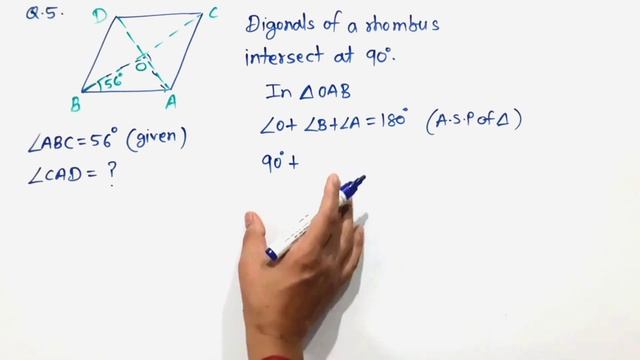 Q.5.
D
C
O
56°
B
A
∠ABC = 56° (given)
∠CAD = ?
Digonals of a rhombus
intersect at 90°.
In △OAB
∠O + ∠B + ∠A = 180° (A.S.P of △)
90° +